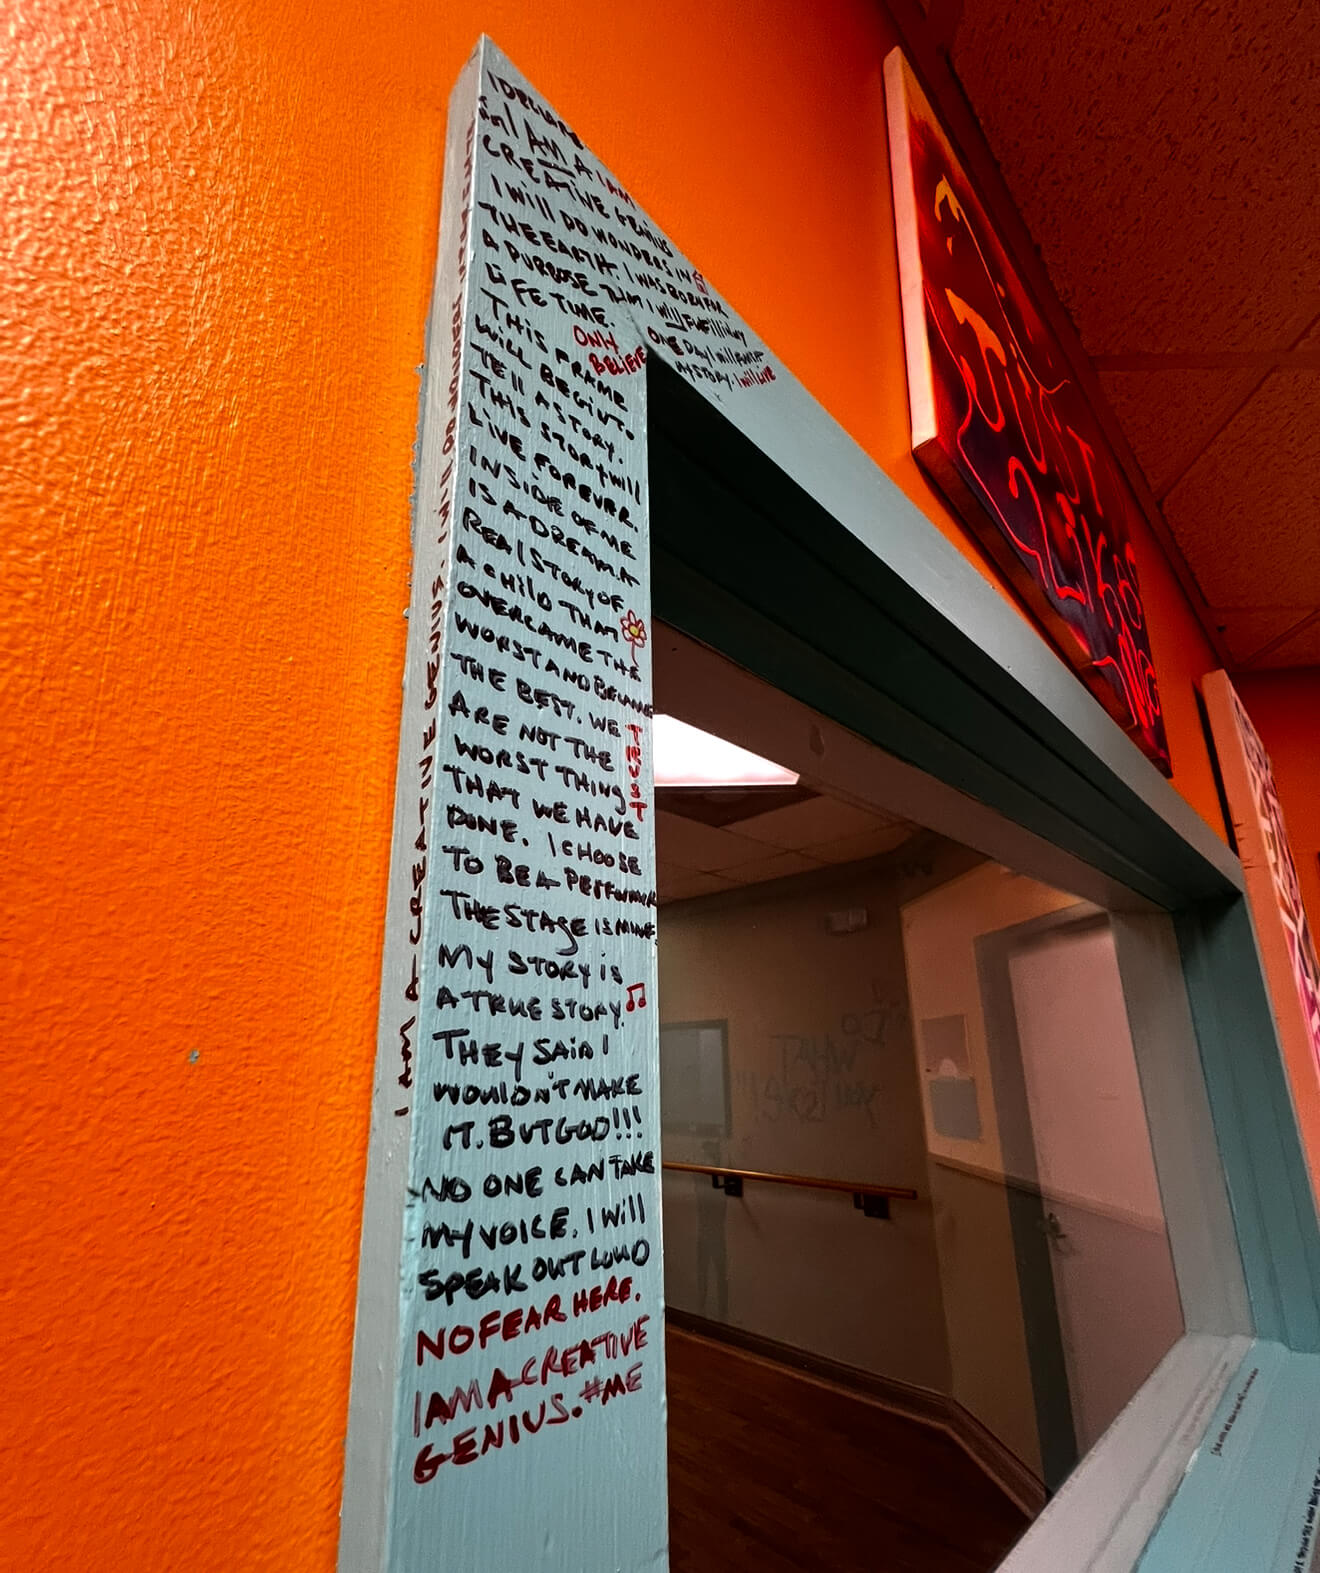 I DECLARE
I AM A I AM
CREATIVE GENIUS
I WILL DO WONDERS IN
THE EARTH. I WAS BORN FOR
A PURPOSE THAT I WILL FULFILL IN MY
LIFE TIME.
ONLY
BELIEVE
ONE DAY I WILL
MY STORY. I WILL LIVE
THIS FRAME
WILL BEGIN TO
TELL A STORY.
THIS STORY WILL
LIVE FOREVER.
INSIDE OF ME
IS A DREAM. A
REAL STORY OF
A CHILD THAT
OVERCAME THE
WORST AND BECAME
THE BEST. WE
ARE NOT THE
WORST THING
THAT WE HAVE
DONE. I CHOOSE
TO BE A PERFORMER
THE STAGE IS MINE
MY STORY IS
A TRUE STORY.
THEY SAID I
WOULDN'T MAKE
IT. BUT GOD!!!
NO ONE CAN TAKE
MY VOICE. I WILL
SPEAK OUT LOUD
NO FEAR HERE.
I AM A CREATIVE
GENIUS. #ME
TRUST
I AM A CREATIVE GENIUS. I WILL DO WONDERS
JUST